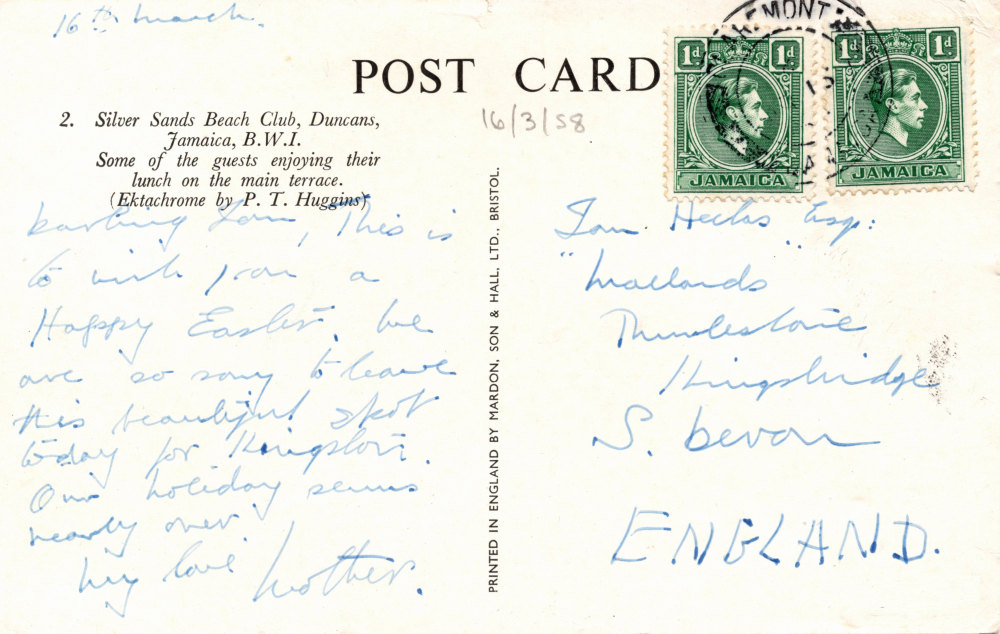 16th March.
POST CARD
2. Silver Sands Beach Club, Duncans,
Jamaica, B.W.I.
Some of the guests enjoying their
lunch on the main terrace.
(Ektachrome by P. T. Huggins)
16/3/58
1d 1d
JAMAICA
1d 1d
JAMAICA
Darling Ian, This is
to wish you a
Happy Easter, we
are so sorry to leave
this beautiful spot
today for Kingston.
Our holiday seems
nearly over.
My love Mother.
PRINTED IN ENGLAND BY MARDON, SON & HALL, LTD., BRISTOL.
Ian Esq:
Thurlestone
Kingsbridge
S. Devon
ENGLAND.